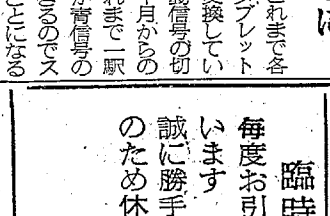 これまで各
タブレット
交換してい
信号の切
月からの
れまで一駅
青信号の
きるのでス
ことになる
臨時
毎度お引
います
誠に勝手
のため休